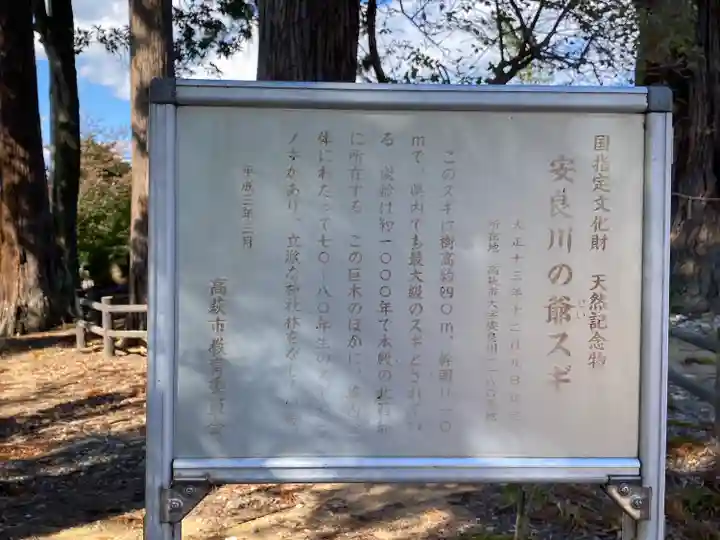 国指定文化財　天然記念物
安良川の爺スギ
せい
大正十三年十二月九日
所在地　高萩市大字安良川
このスギは樹高約四〇m、幹囲り一〇
mで、県内でも最大級のスギとされてい
る　樹齢は約一〇〇〇年で本殿の北
に所在する　この巨木のほかに、
体にわたって七〇〜八〇年生の
ノキがあり、立派な神社林をな
平成三年三月
高萩市教育委員会